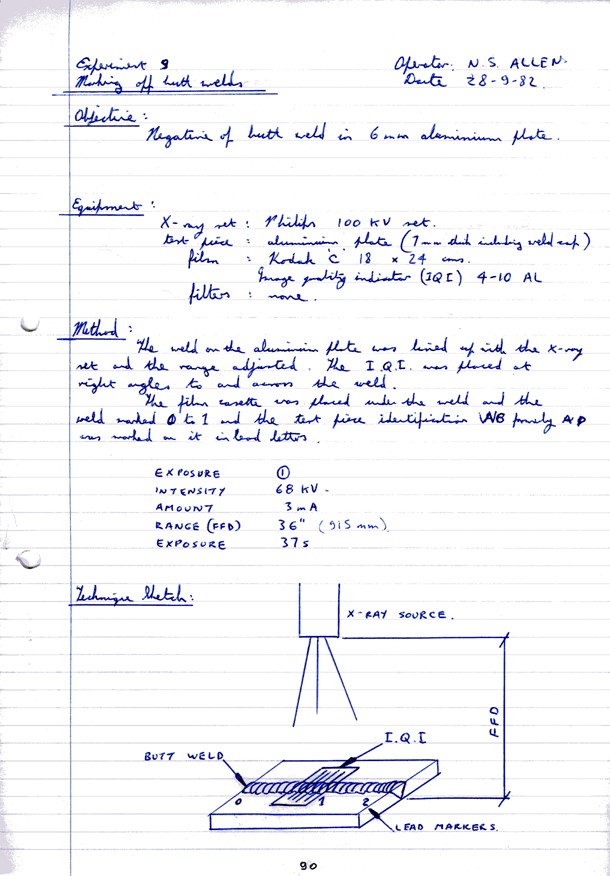 Experiment 9
Operator: N.S. ALLEN.
Making off butt welds
Date 28-9-82.
Objective:
Negative of butt weld in 6 mm aluminium plate.
Equipment:
X-ray set: Philips 100 KV set.
test piece: aluminium plate (7mm thick including weld cap)
film: Kodak 'C' 18 x 24 cms.
Image quality indicator (IQI) 4-10 AL
filters: none.
Method:
The weld on the aluminium plate was lined up with the X-ray
set and the range adjusted. The I.Q.I. was placed at
right angles to and across the weld.
The film casette was placed under the weld and the
weld marked 0 to 1 and the test piece identification
was marked on it in lead letters.
EXPOSURE ①
INTENSITY 68 KV -
AMOUNT 3 mA
RANGE (FFD) 36" (915 mm).
EXPOSURE 37s
Technique Sketch:
X-RAY SOURCE.
FFD
I.Q.I
BUTT WELD
0 1 2
LEAD MARKERS.
90